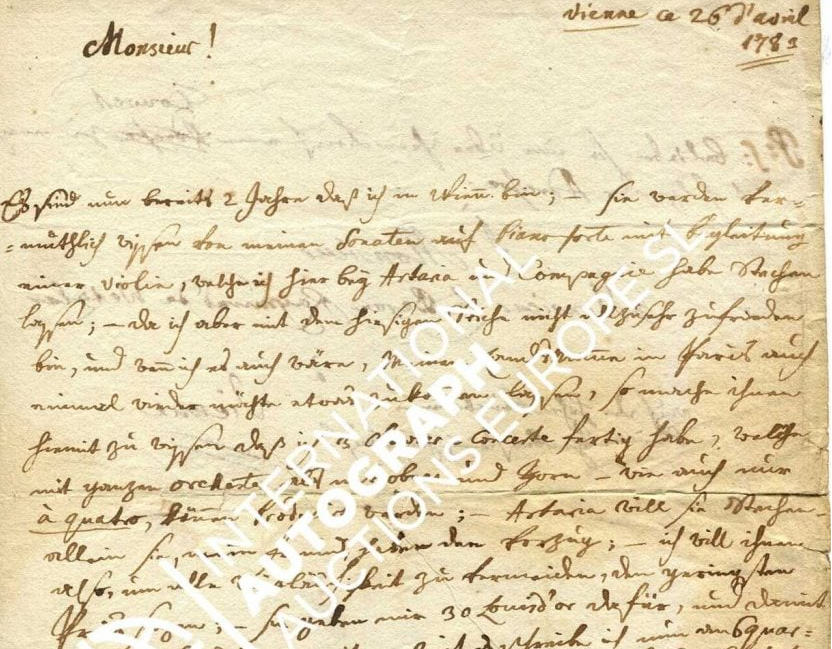 Vienne ce 26 d'avril
1783
Monsieur!
P: S:
Es sind nun bereits 2 Jahre daß ich in Wienn bin; – sie werden ver-
=muthlich wissen von meinen Sonaten auf Piano forte mit begleitung
einer violin, welche ich hier bey Artaria und Compagnie habe Stechen
lassen; – da ich aber mit dem hiesigen Stiche nicht allzusehr zufrieden
bin, und wenn ich es auch wäre, meinem Landsmanne in Paris auch
einmal wieder möchte etwas zukommen lassen, so mache ihnen
hiemit zu wissen daß ich 3 Clavier-Concerte fertig habe, welche
mit ganzen orchestre, als mit oboen und Horn – wie auch nur
à quatro, können werden; – Artaria will sie Stechen.
allein sie, mein freund, haben den vorzug; – ich will ihnen
also, um alle Weitläufigkeit zu vermeiden, den geringsten
Preis; – sie geben mir 30 Louis d'or dafür, und damit
schreibe ich nun an 6 quar=
INTERNATIONAL
AUTOGRAPH
AUCTIONS EUROPE SL